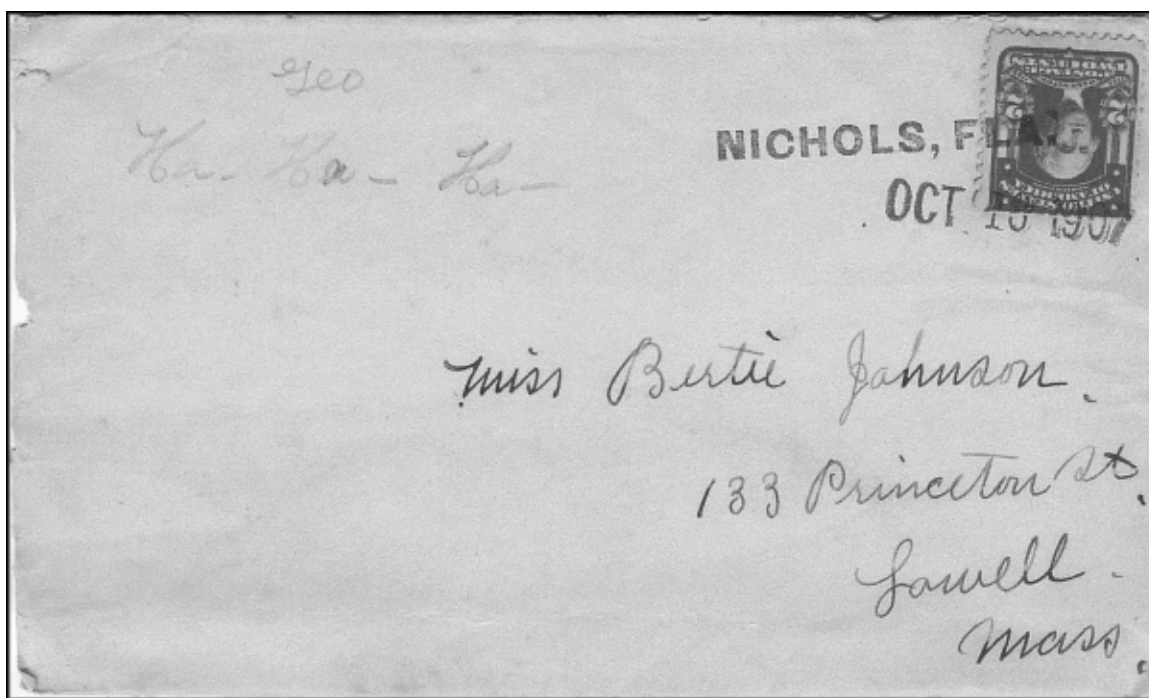 Geo
Ha - Ha - Ha -
NICHOLS, FLA.
OCT 1907
Miss Bertie Johnson.
133 Princeton St.
Lowell.
Mass.